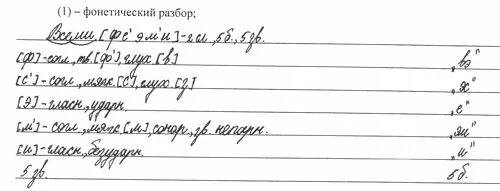 (1) – фонетический разбор;
Всеми [фс'эм'и] - 2 сл., 5 б., 5 зв.
[ф] - согл., тв. [ф'], глух. [в] „вэ"
[с'] - согл., мягк. [с], глух. [з] „эс"
[э] - гласн., ударн. „е"
[м'] - согл., мягк. [м], сонор., зв. непарн. „эм"
[и] - гласн., безударн. „и"
5 зв. 5 б.